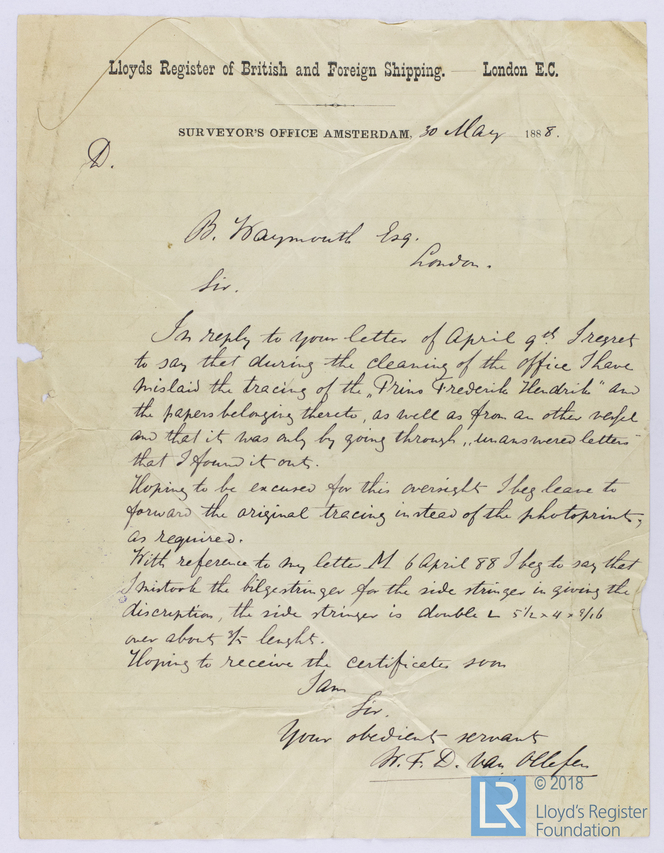 Lloyds Register of British and Foreign Shipping. — London E.C.
SURVEYOR'S OFFICE AMSTERDAM, 30 May 1888.
D.
B. Waymouth Esq.
London.
Sir.
In reply to your letter of April 9th I regret
to say that during the cleaning of the office I have
mislaid the tracing of the „Prins Frederik Hendrik" and
the papers belonging thereto, as well as from an other vessel
and that it was only by going through „unanswered letters"
that I found it out.
Hoping to be excused for this oversight I beg leave to
forward the original tracing instead of the photoprint,
as required.
With reference to my letter M 6 April 88 I beg to say that
I mistook the bilgestringer for the side stringer in giving the
discription, the side stringer is double L 5 1/2 x 4 x 9/16
over about 3/5 lenght.
Hoping to receive the certificates soon
I am
Sir.
Your obedient servant
W. F. D. Van Ollefen
LR
© 2018
Lloyd's Register
Foundation